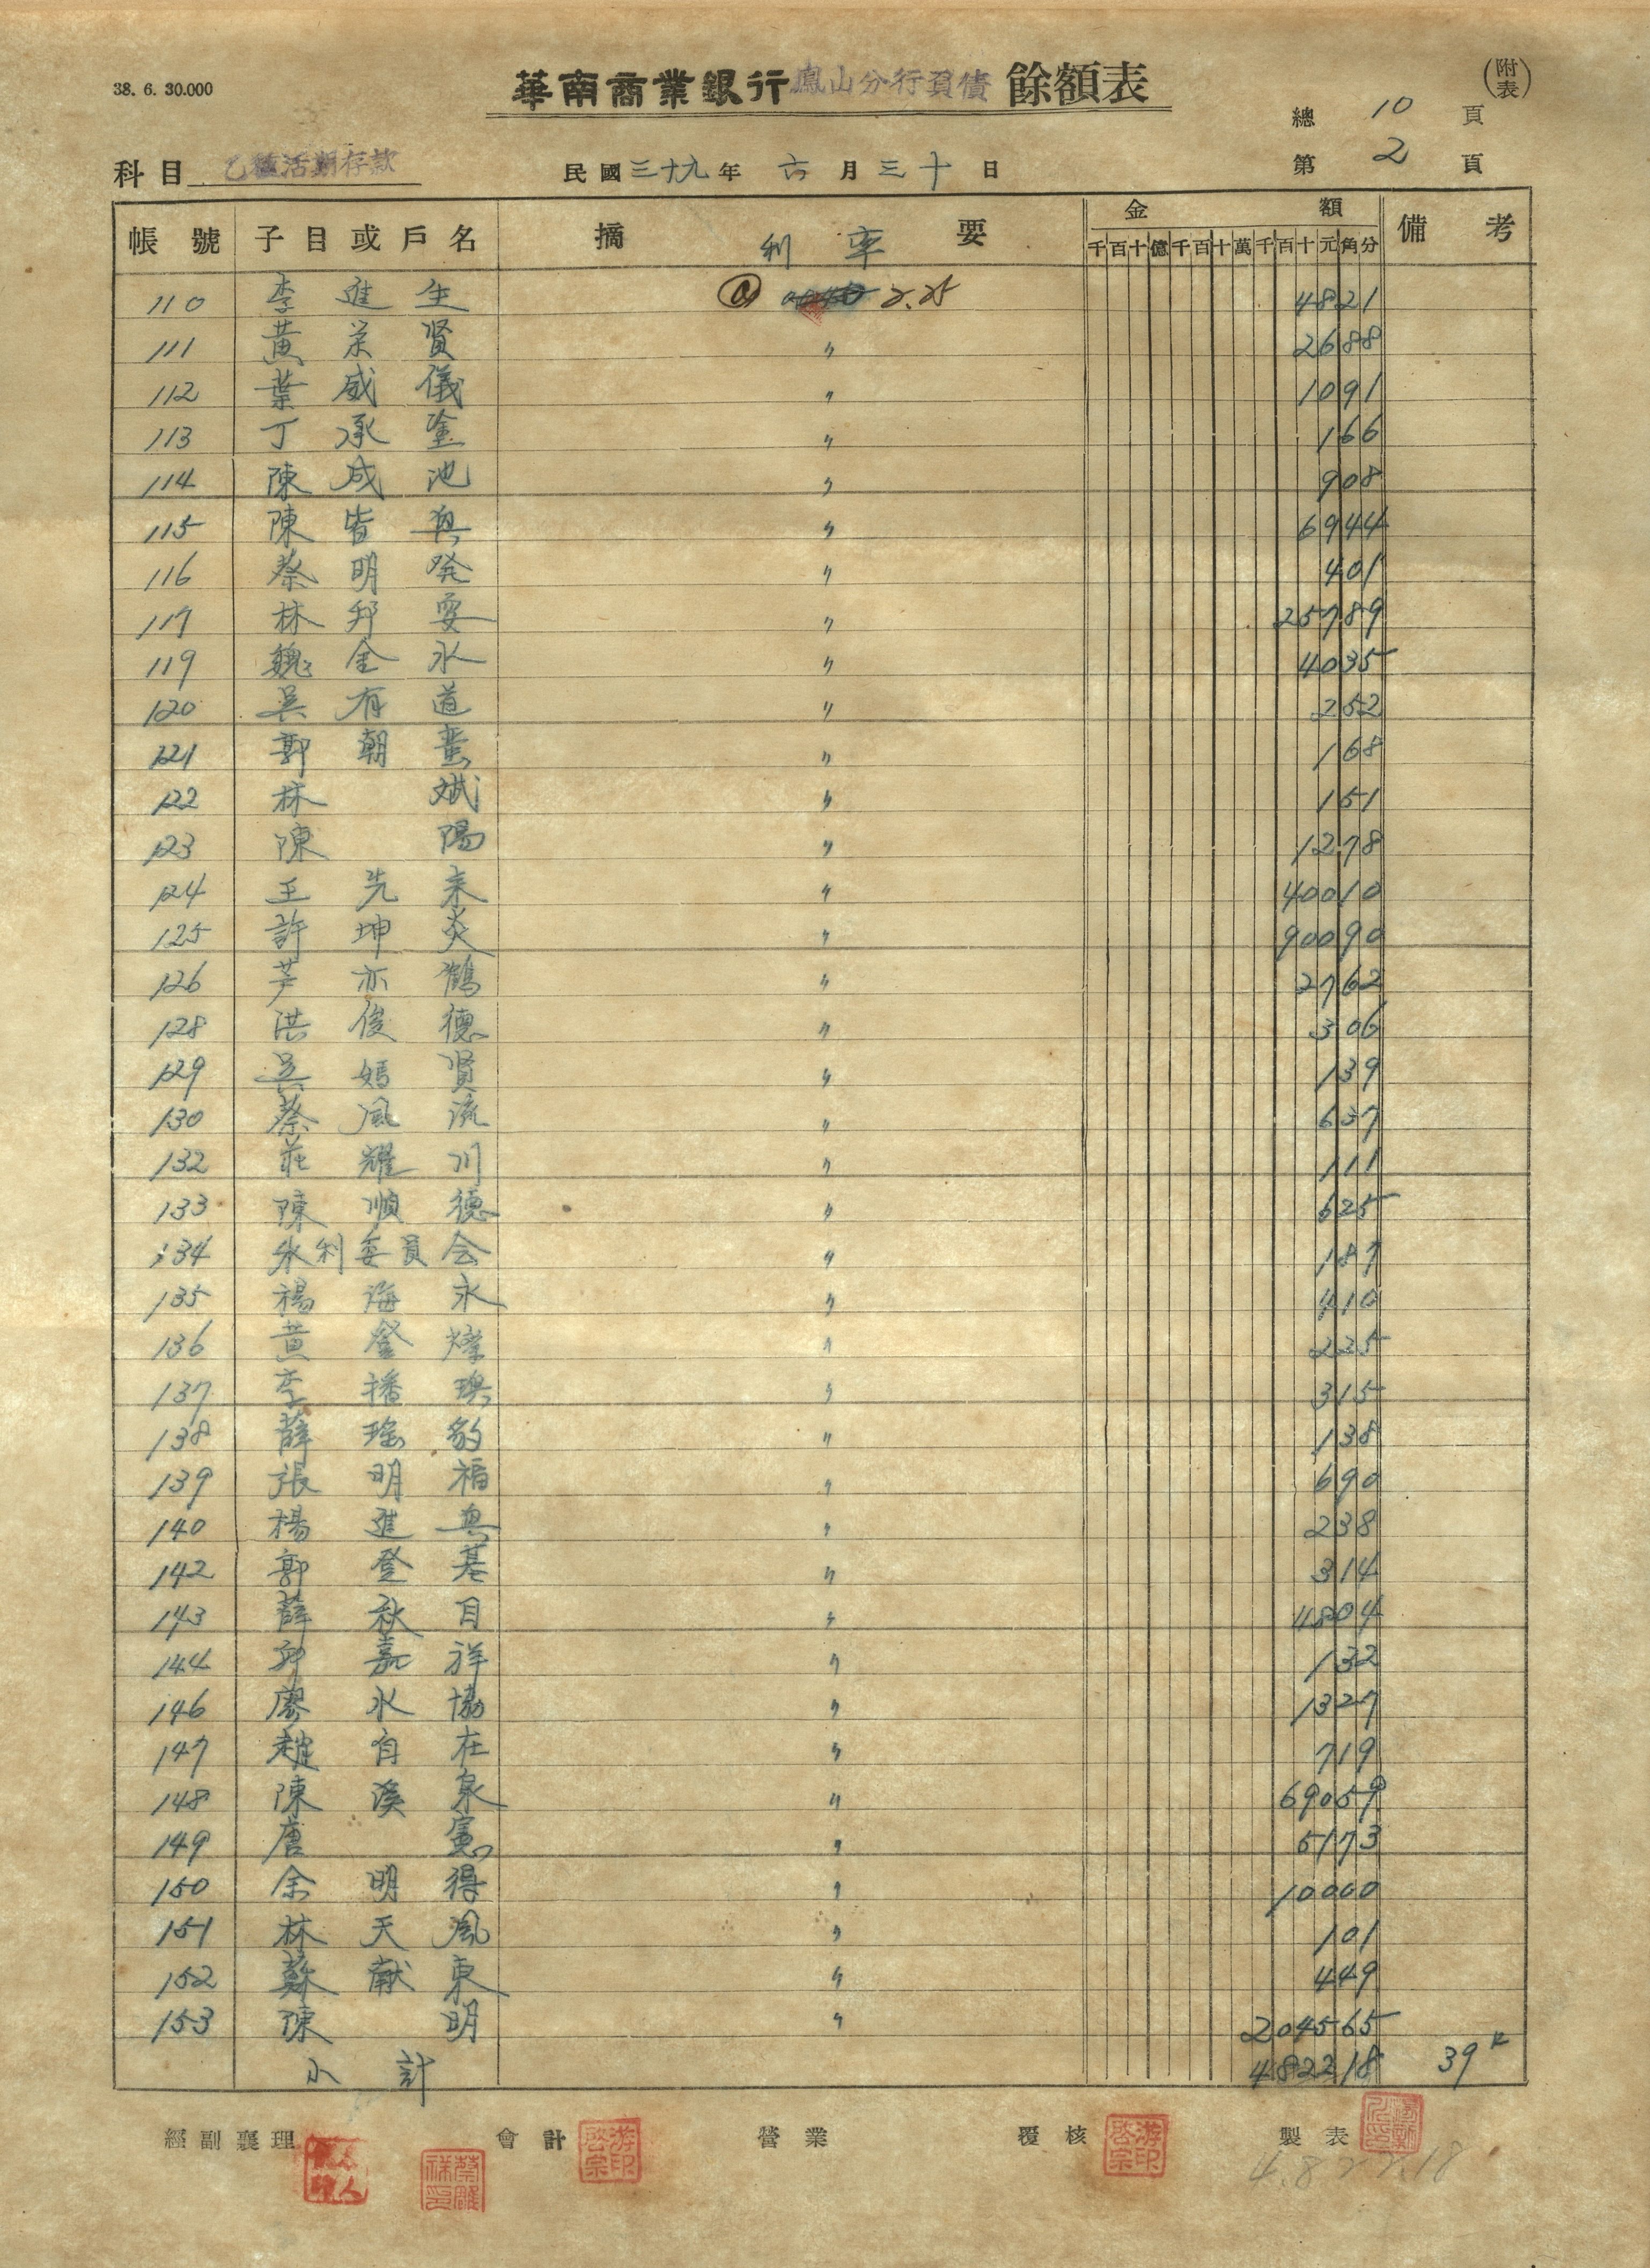 38. 6. 30.000
華南商業銀行鳳山分行負債餘額表
(附表)
總 10 頁
科目 乙種活期存款 民國三十九年 六月三十日 第 2 頁
帳號 子目或戶名 摘要 金額 備考
利率 千百十億千百十萬千百十元角分
110 李進生 @ 2.25 4821
111 黃荣賢 〃 2688
112 葉威儀 〃 1091
113 丁承 〃 166
114 陳成池 〃 908
115 陳皆興 〃 6944
116 蔡明発 〃 401
117 林邦 〃 25789
119 魏金水 〃 4035
120 吳有道 〃 252
121 郭朝 〃 168
122 林斌 〃 151
123 陳陽 〃 1278
124 王先来 〃 40010
125 許坤炎 〃 90090
126 亦鶴 〃 2762
128 洪俊德 〃 306
129 吳嫣賢 〃 139
130 蔡風流 〃 637
132 莊耀川 〃 111
133 陳順德 〃 625
134 水利委員会 〃 187
135 楊海永 〃 410
136 黃登燦 〃 225
137 李播 〃 315
138 薛瑤豹 〃 138
139 張明福 〃 690
140 楊進興 〃 238
142 郭登基 〃 314
143 薛秋目 〃 4804
144 嘉祥 〃 132
146 廖水協 〃 1327
147 趙自在 〃 719
148 陳溪泉 〃 69059
149 唐憲 〃 5173
150 余明得 〃 10000
151 林天風 〃 101
152 蘇献東 〃 449
153 陳明 〃 204565
小計 482218 39
經副襄理 會計 營業 覆核 製表
蔡雕祥印
游啓宗印
游啓宗印
4.822.18